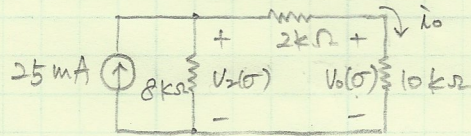 i₀
+ 2kΩ +
25 mA 8kΩ V₂(σ) V₀(σ) 10 kΩ
- -